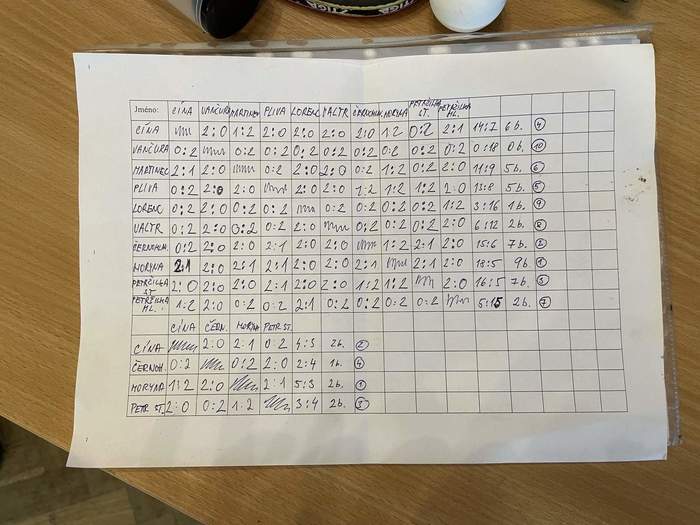 STIGA
Jméno: CÍNA VANČURA MARTINEC PLIVA LORENC VALTR ČERNOHLM. MORYNA PETRČILKA ST. PETRČILKA ML.
CÍNA 2:0 1:2 2:0 2:0 2:0 2:0 1:2 0:2 2:1 14:7 6b. 4
VANČURA 0:2 0:2 0:2 0:2 0:2 0:2 0:2 0:2 0:2 0:18 0b. 10
MARTINEC 2:1 2:0 0:2 2:0 2:0 0:2 1:2 0:2 2:0 11:9 5b. 6
PLIVA 0:2 2:0 2:0 2:0 2:0 1:2 1:2 1:2 2:0 13:8 5b. 5
LORENC 0:2 2:0 0:2 0:2 0:2 0:2 0:2 0:2 1:2 3:16 1b. 9
VALTR 0:2 2:0 0:2 0:2 2:0 0:2 0:2 0:2 2:0 6:12 2b. 8
0:2 2:0 2:0 2:1 2:0 2:0 1:2 2:1 2:0 15:6 7b. 2
MORYNA 2:1 2:0 2:1 2:1 2:0 2:0 2:1 2:1 2:0 18:5 9b 1
PETRČILKA ST 2:0 2:0 2:0 2:1 2:0 2:0 1:2 1:2 2:0 16:5 7b. 3
PETRČILKA ML. 1:2 2:0 0:2 0:2 2:1 0:2 0:2 0:2 0:2 5:15 2b. 7
CÍNA ČERN. MORYNA PETR ST.
CÍNA 2:0 2:1 0:2 4:3 2b. 2
ČERNOH. 0:2 0:2 2:0 2:4 1b. 4
MORYNA 1:2 2:0 2:1 5:3 2b. 1
PETR. ST. 2:0 0:2 1:2 3:4 2b. 3